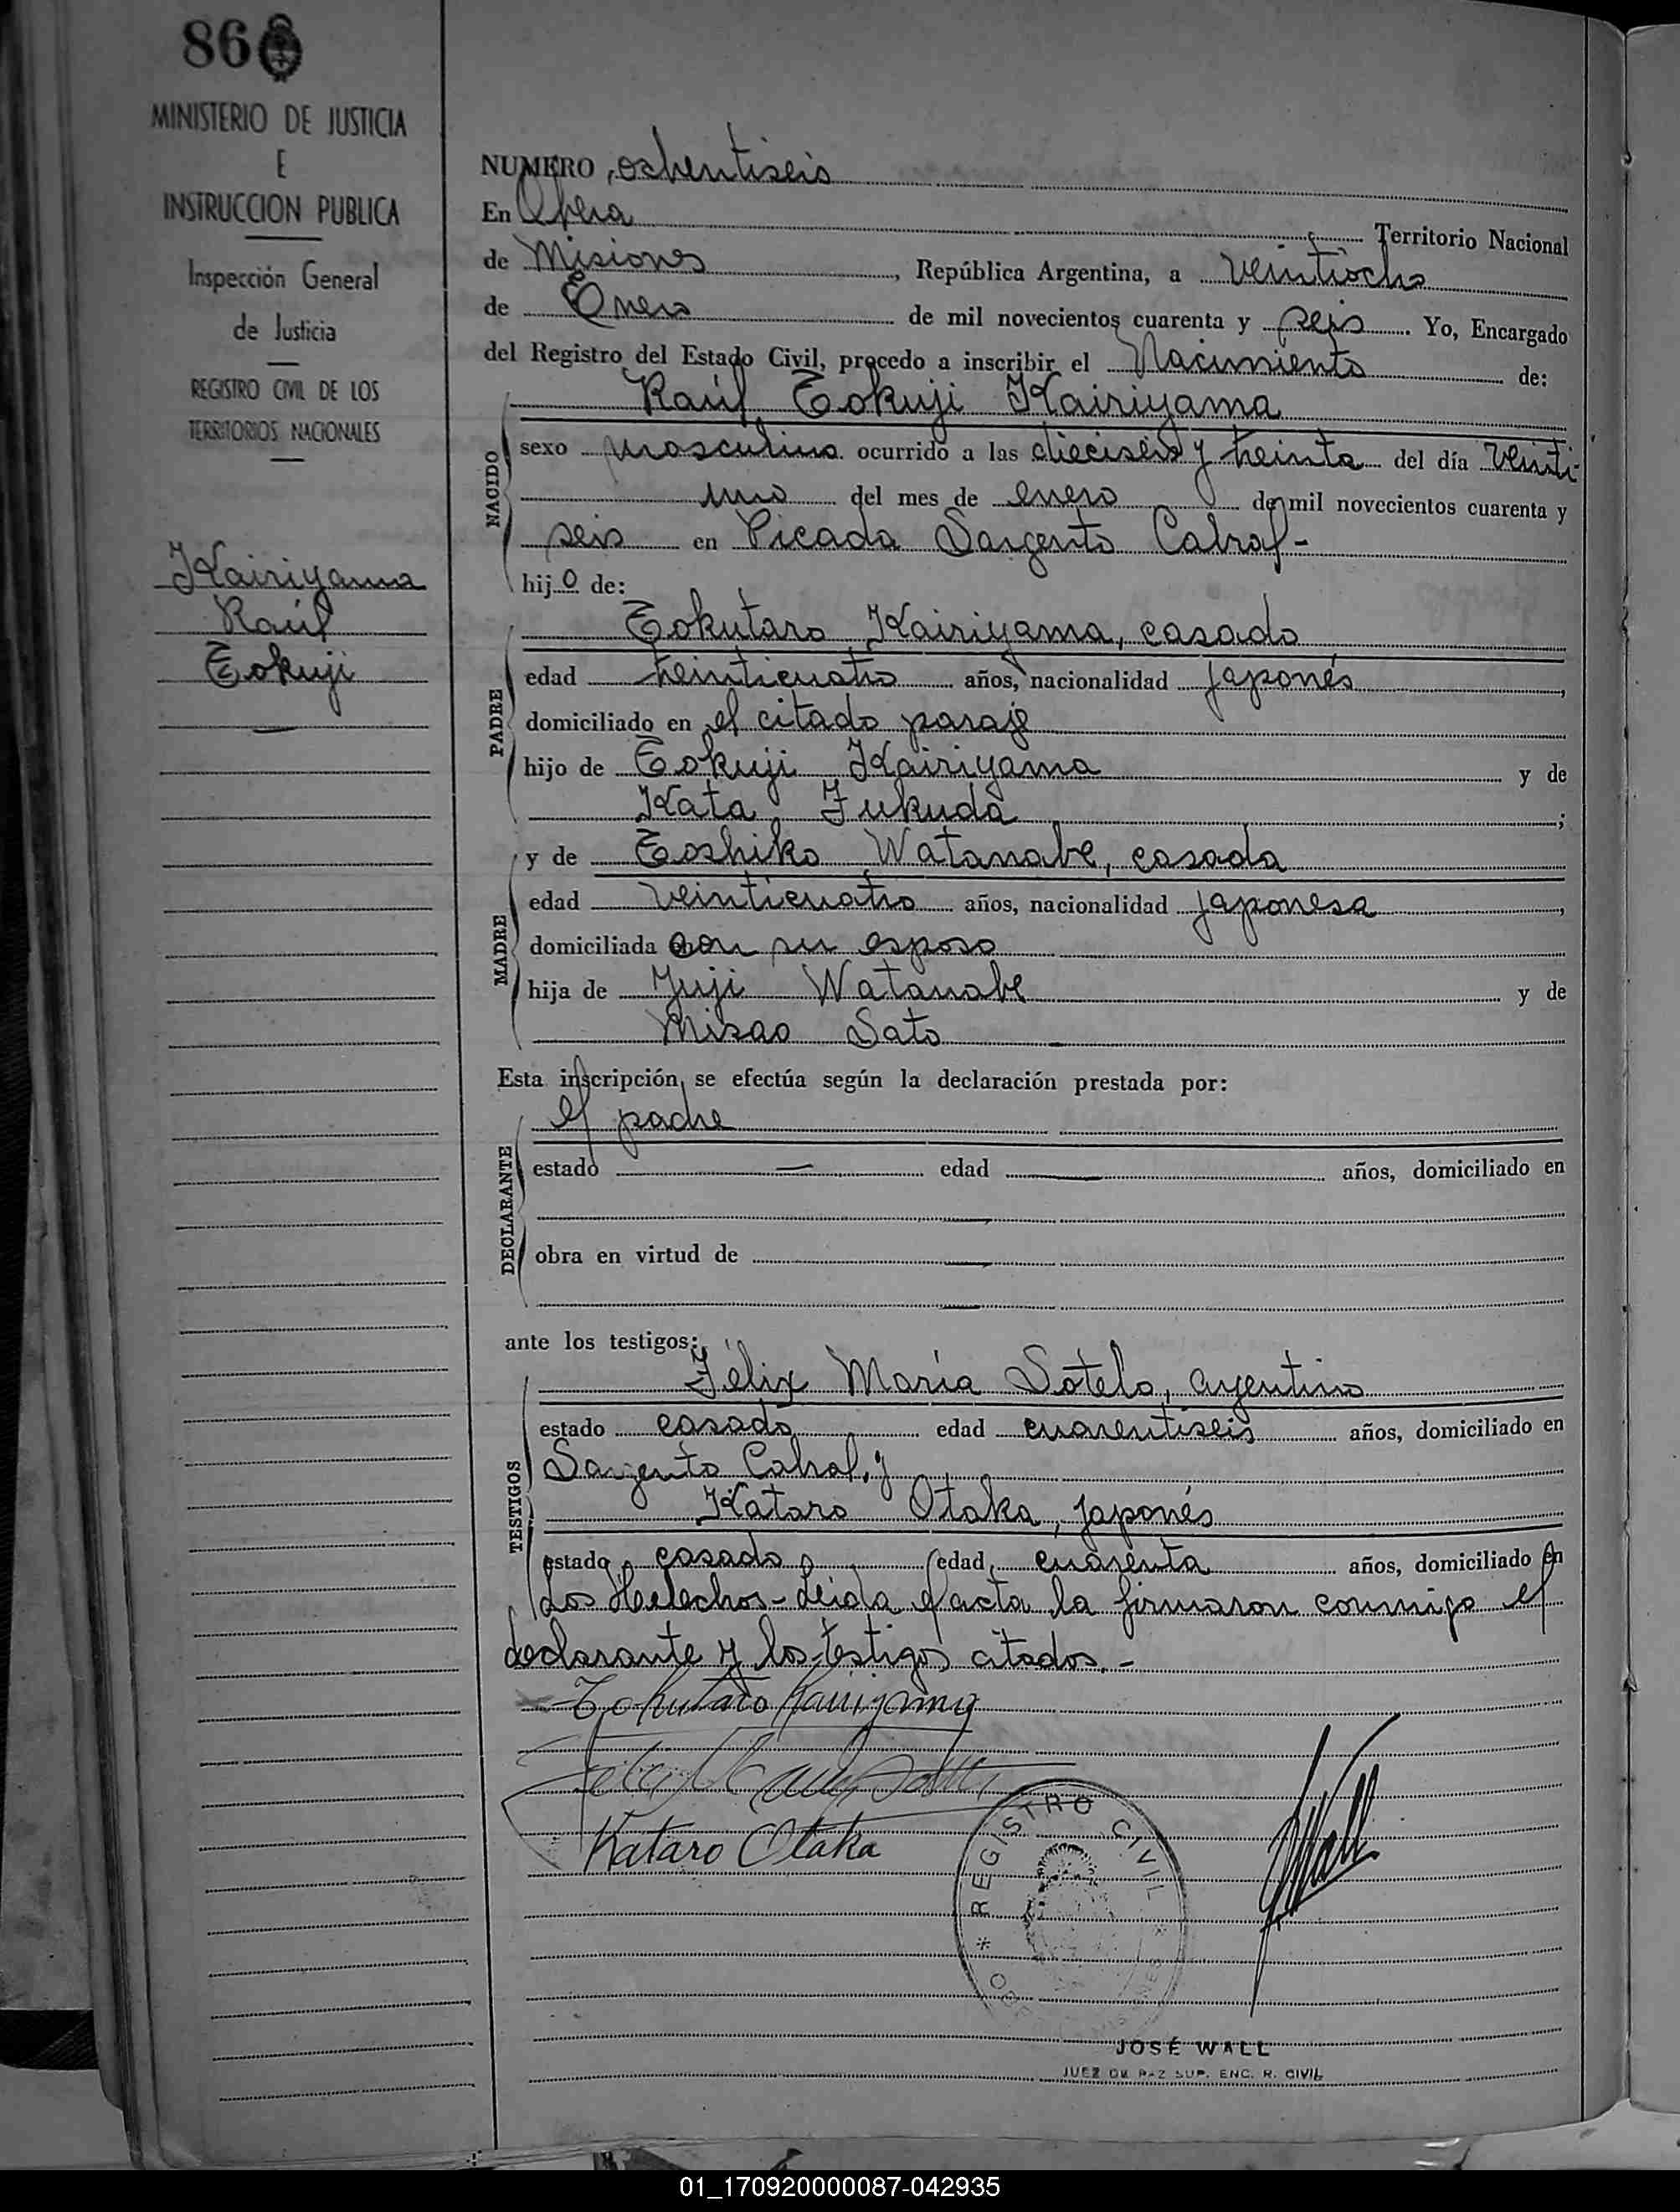 86
MINISTERIO DE JUSTICIA
E
INSTRUCCION PUBLICA
Inspección General
de Justicia
REGISTRO CIVIL DE LOS
TERRITORIOS NACIONALES
Kairiyama
Raúl
Tokuji
NUMERO, ochentiseis
En Obera Territorio Nacional
de Misiones, República Argentina, a veintiocho
de Enero de mil novecientos cuarenta y seis. Yo, Encargado
del Registro del Estado Civil, procedo a inscribir el Nacimiento de:
Raúl Tokuji Kairiyama
NACIDO
sexo masculino ocurrido a las dieciseis y treinta del día veinti-
uno del mes de enero de mil novecientos cuarenta y
seis en Picada Sargento Cabral-
hijo de:
PADRE
Tokutaro Kairiyama, casado
edad treinticuatro años, nacionalidad japonés,
domiciliado en el citado paraje
hijo de Tokuji Kairiyama y de
Kata Fukuda;
MADRE
y de Toshiko Watanabe, casada
edad veinticuatro años, nacionalidad japonesa,
domiciliada con su esposo
hija de Yuji Watanabe y de
Misao Sato
Esta inscripción, se efectúa según la declaración prestada por:
DECLARANTE
el padre
estado — edad — años, domiciliado en
obra en virtud de
ante los testigos:
TESTIGOS
Félix María Sotelo, argentino
estado casado edad cuarentiseis años, domiciliado en
Sargento Cabral, y
Kataro Otaka, japonés
estado casado edad cuarenta años, domiciliado en
Los Helechos- Leida el acta la firmaron conmigo el
declarante y los testigos citados.-
Tokutaro Kairiyama
Kataro Otaka
REGISTRO CIVIL
Wall
JOSÉ WALL
JUEZ DE PAZ SUP. ENC. R. CIVIL
01_170920000087-042935